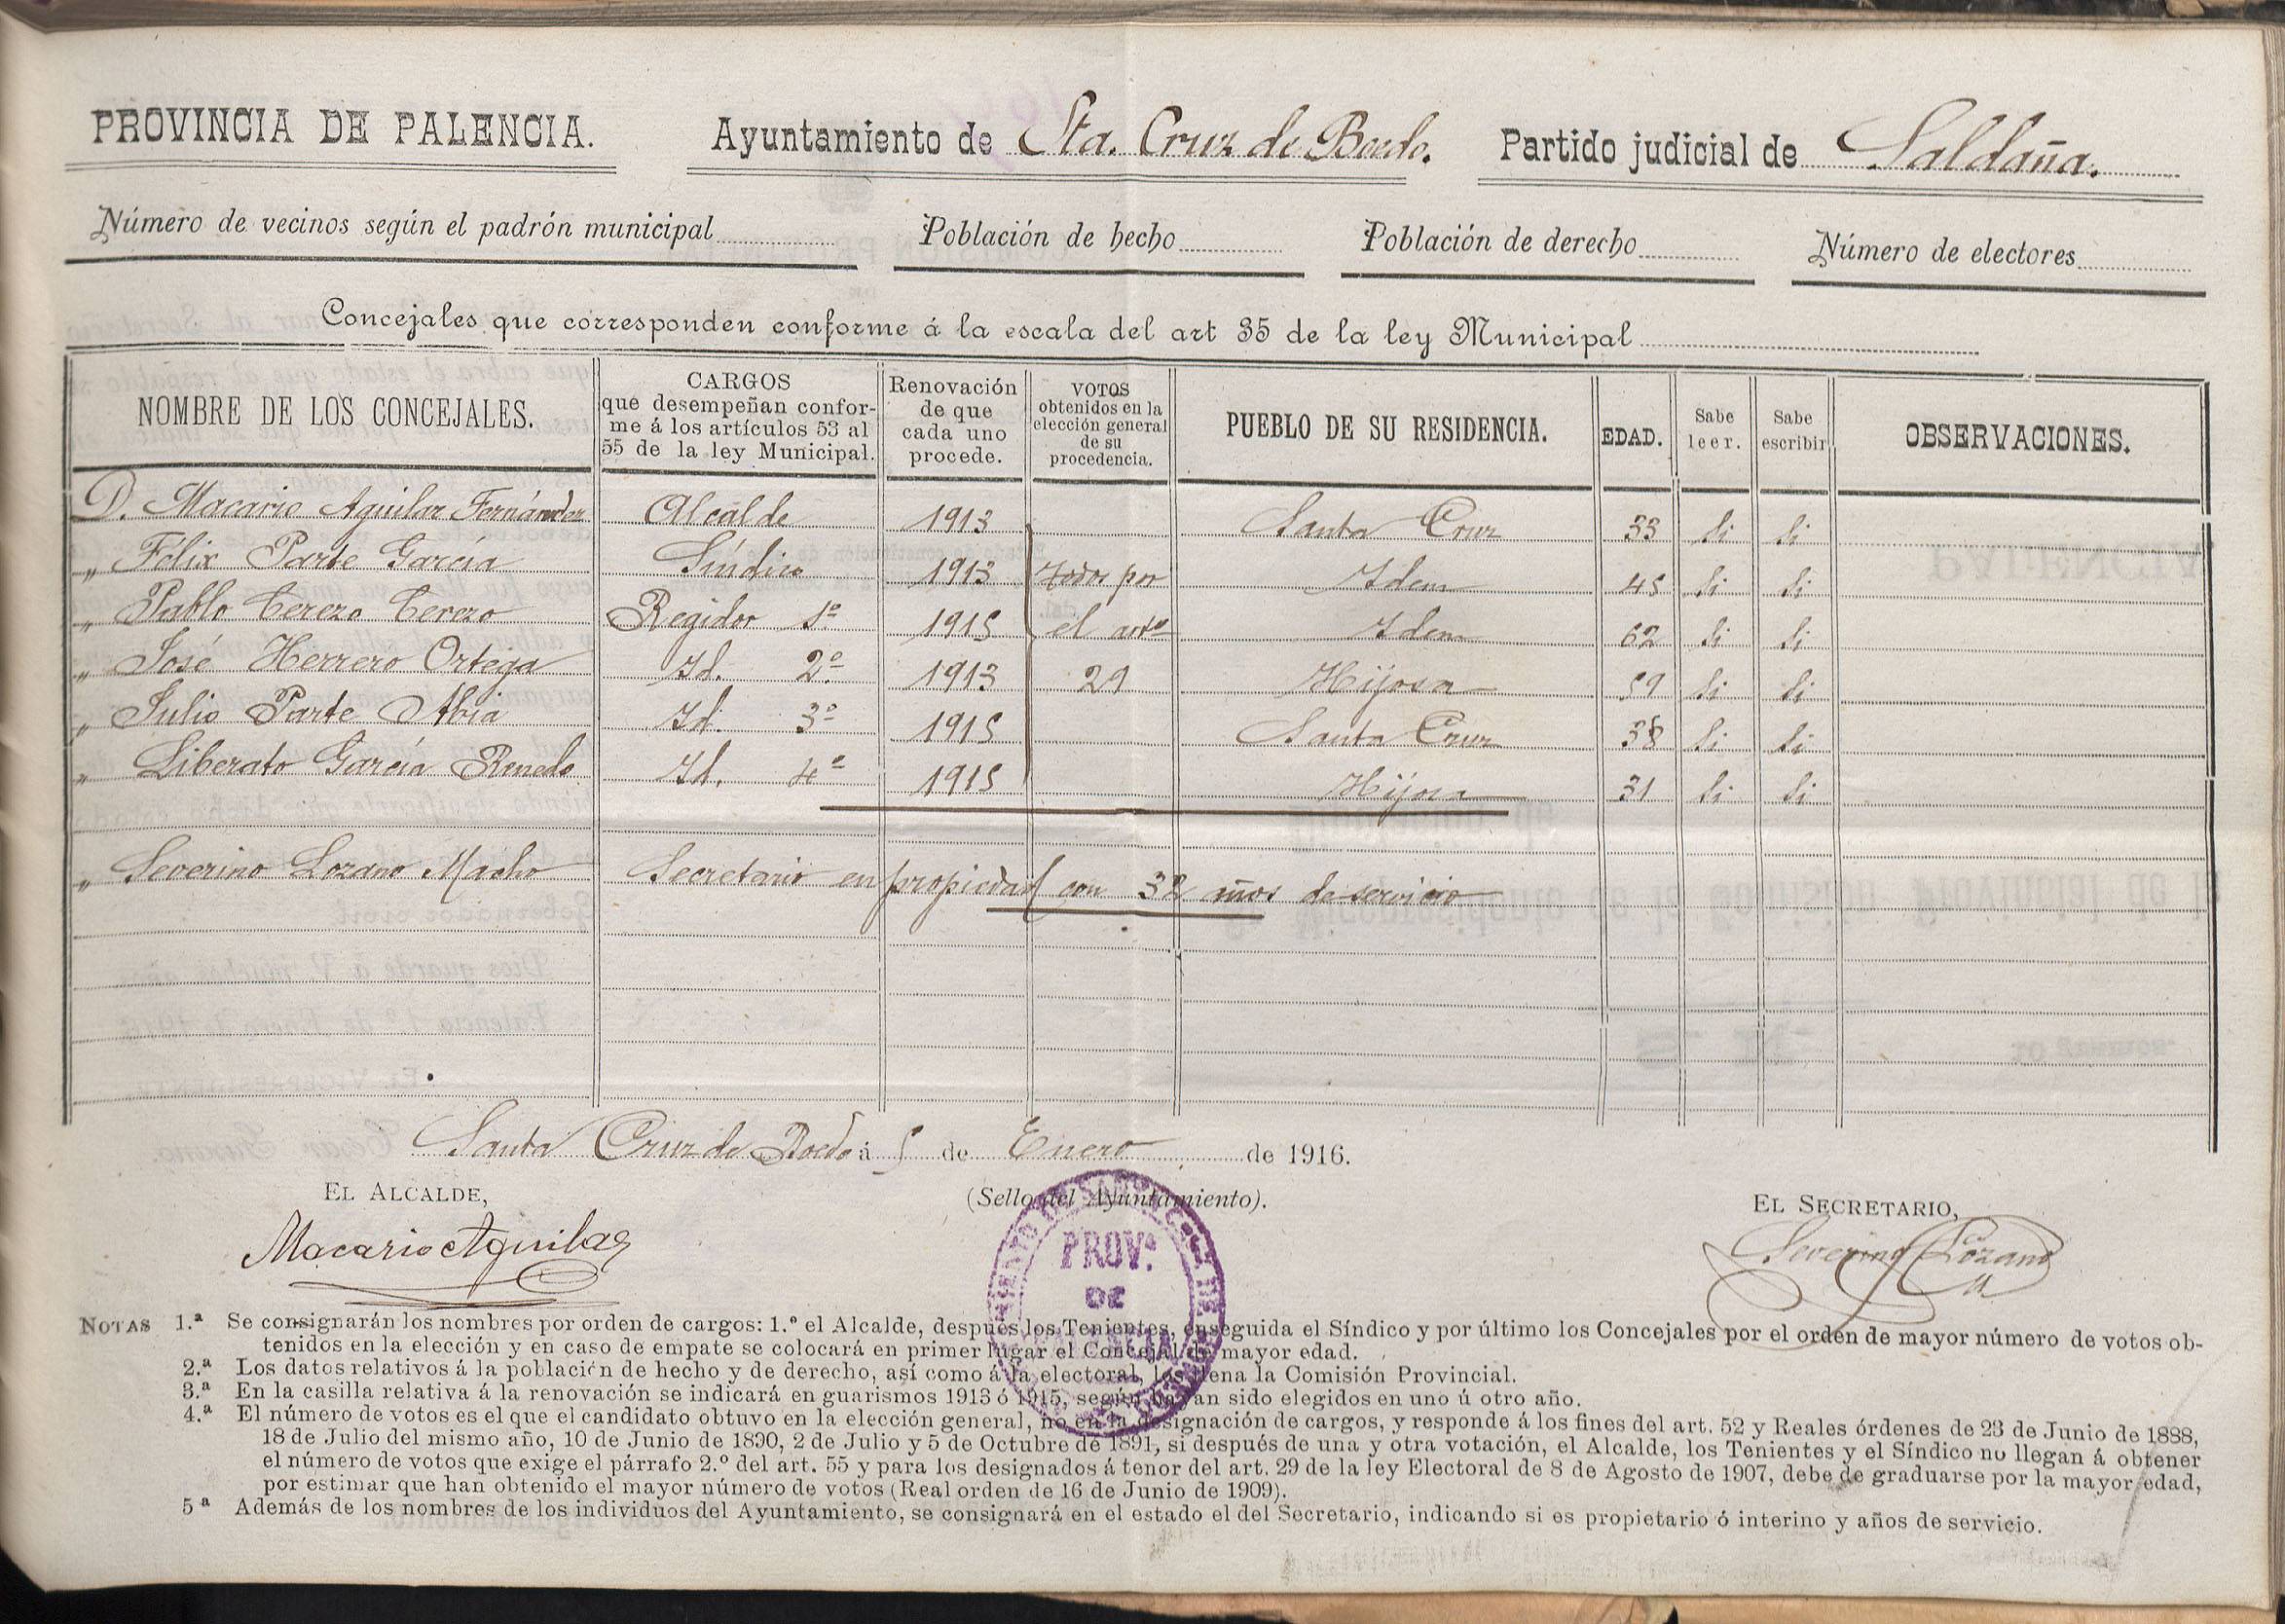 PROVINCIA DE PALENCIA. Ayuntamiento de Sta. Cruz de Boedo. Partido judicial de Saldaña.
Número de vecinos según el padrón municipal Población de hecho Población de derecho Número de electores
Concejales que corresponden conforme á la escala del art 35 de la ley Municipal
NOMBRE DE LOS CONCEJALES. CARGOS que desempeñan confor- me á los artículos 53 al 55 de la ley Municipal. Renovación de que cada uno procede. VOTOS obtenidos en la elección general de su procedencia. PUEBLO DE SU RESIDENCIA. EDAD. Sabe leer. Sabe escribir OBSERVACIONES.
D. Macario Aguilar Fernández Alcalde 1913 Santa Cruz 33 Si Si
„ Félix Parte García Síndico 1913 todos por Idem 45 Si Si
„ Pablo Cerezo Cerezo Regidor 1º 1915 el artº Idem 62 Si Si
„ José Herrero Ortega Id. 2º 1913 29 Hijosa 59 Si Si
„ Julio Parte Abia Id. 3º 1915 Santa Cruz 38 Si Si
„ Liberato García Renedo Id. 4º 1915 Hijosa 31 Si Si
„ Severino Lozano Macho Secretario en propiedad con 32 años de servicio
Santa Cruz de Boedo á 5 de Enero de 1916.
EL ALCALDE, (Sello del Ayuntamiento). EL SECRETARIO,
Macario Aguilar PROVª DE Severino Lozano
NOTAS 1.ª Se consignarán los nombres por orden de cargos: 1.º el Alcalde, después los Tenientes, enseguida el Síndico y por último los Concejales por el orden de mayor número de votos ob-
tenidos en la elección y en caso de empate se colocará en primer lugar el Concejal de mayor edad.
2.ª Los datos relativos á la población de hecho y de derecho, así como á la electoral, los llena la Comisión Provincial.
3.ª En la casilla relativa á la renovación se indicará en guarismos 1913 ó 1915, según hayan sido elegidos en uno ú otro año.
4.ª El número de votos es el que el candidato obtuvo en la elección general, no en la designación de cargos, y responde á los fines del art. 52 y Reales órdenes de 23 de Junio de 1888,
18 de Julio del mismo año, 10 de Junio de 1890, 2 de Julio y 5 de Octubre de 1891, si después de una y otra votación, el Alcalde, los Tenientes y el Síndico no llegan á obtener
el número de votos que exige el párrafo 2.º del art. 55 y para los designados á tenor del art. 29 de la ley Electoral de 8 de Agosto de 1907, debe de graduarse por la mayor edad,
por estimar que han obtenido el mayor número de votos (Real orden de 16 de Junio de 1909).
5ª Además de los nombres de los individuos del Ayuntamiento, se consignará en el estado el del Secretario, indicando si es propietario ó interino y años de servicio.